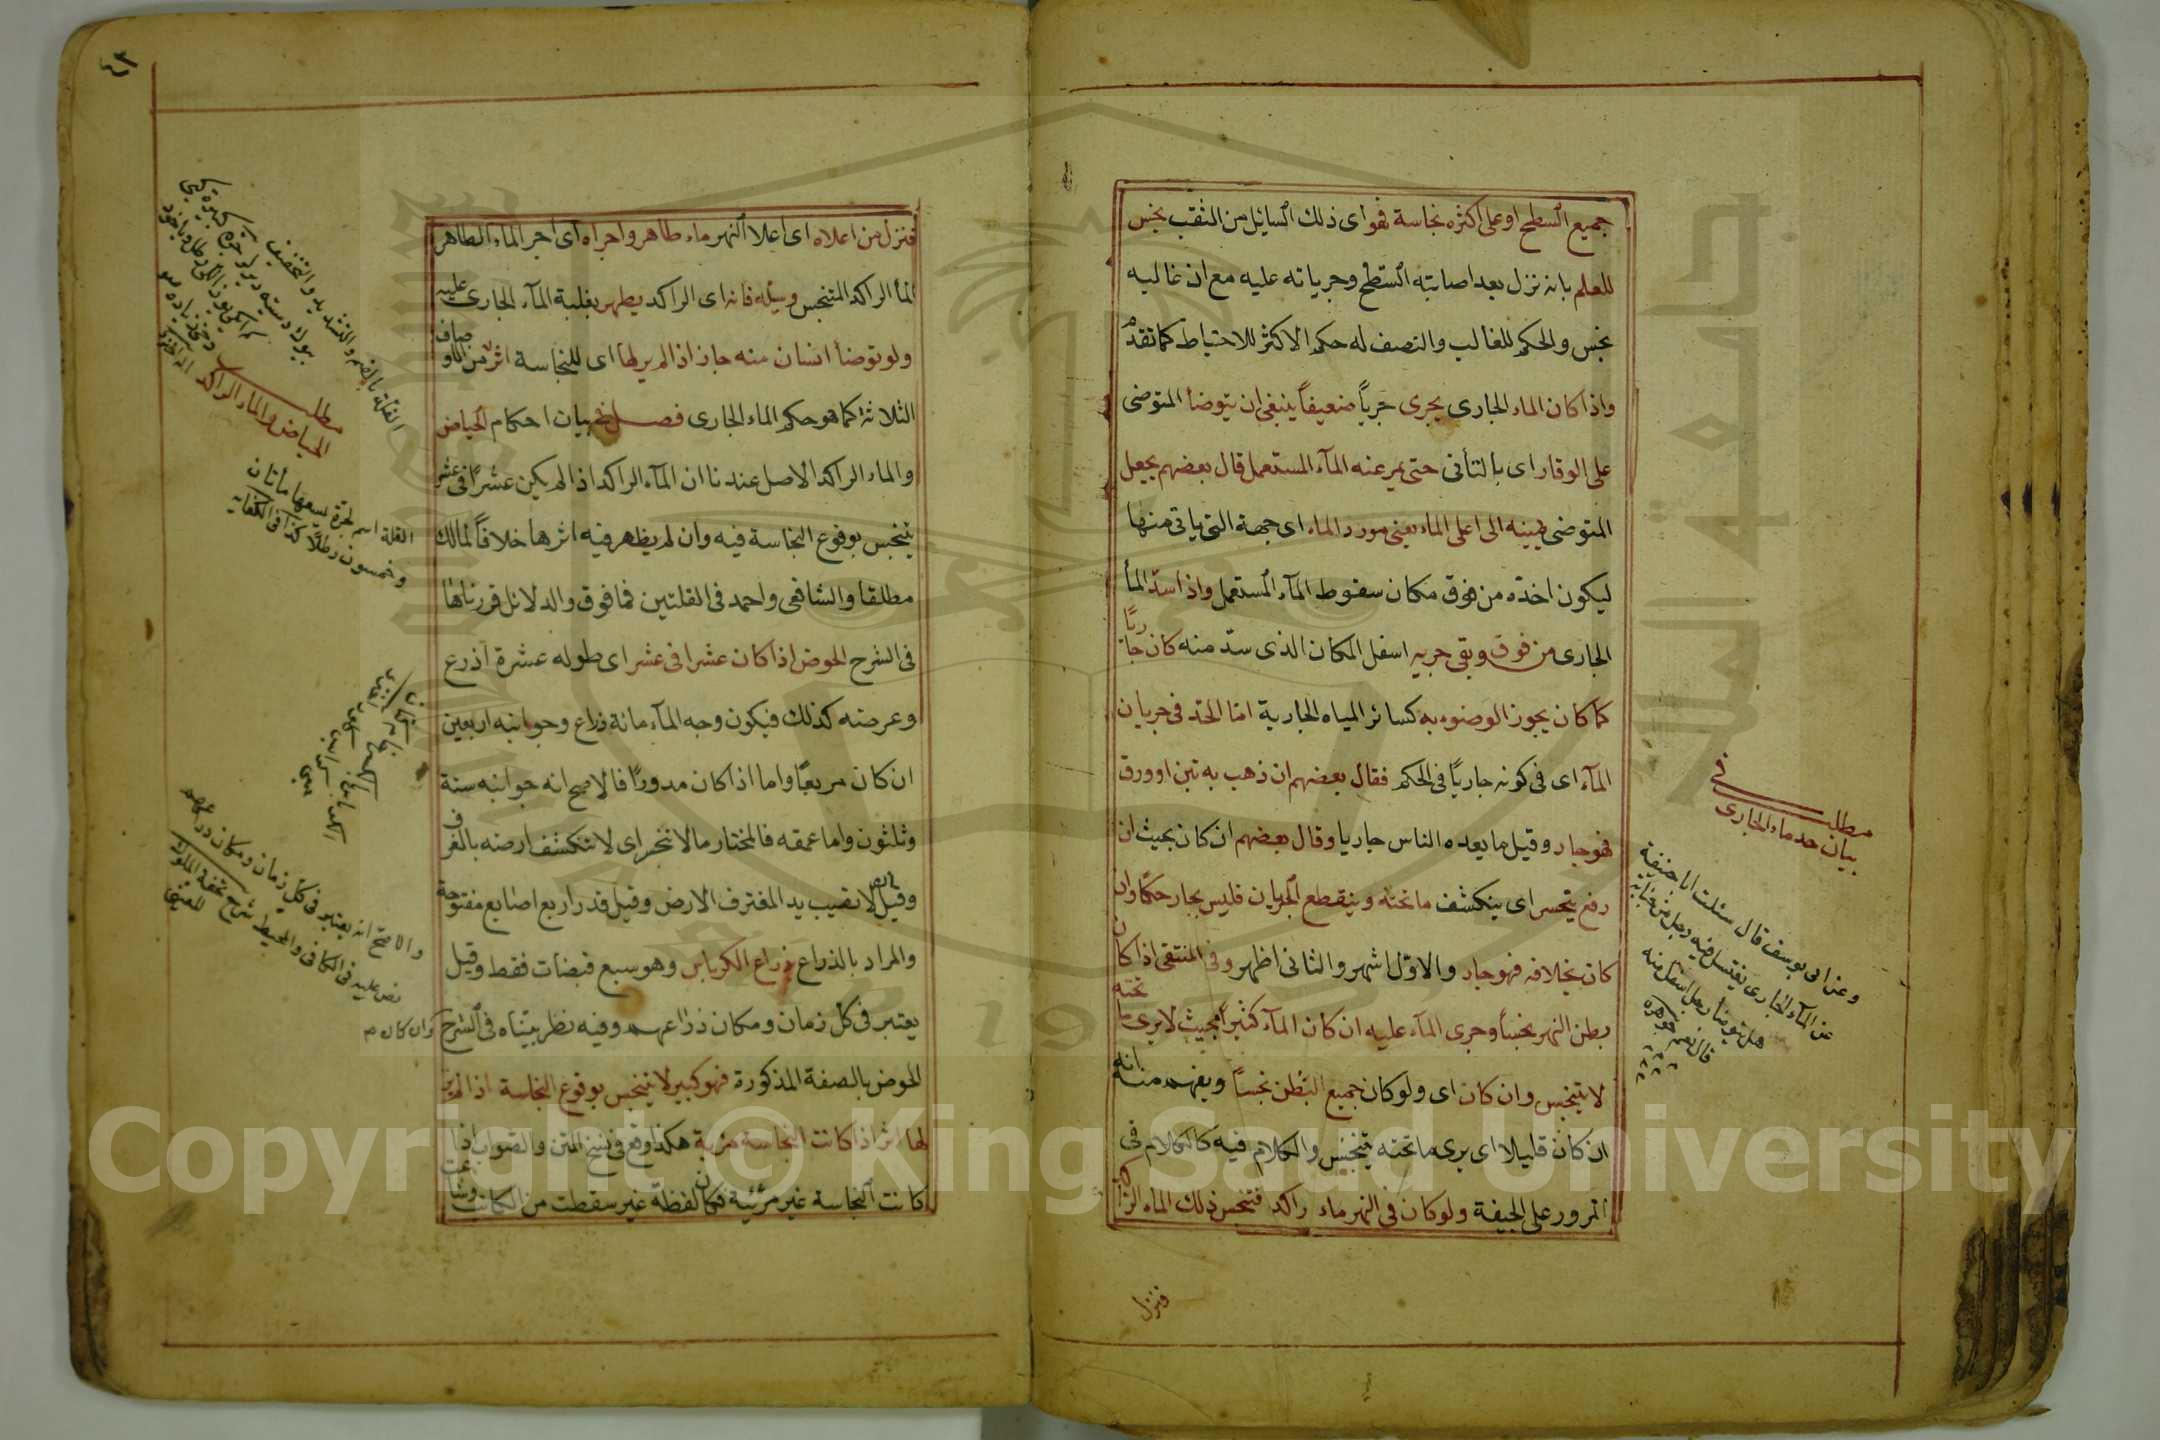 جميع السطح او على اكثره نجاسة فهو اى ذلك السايل من الثقب نجس
للعلم بانه نزل بعد اصابته السطح وجريانه عليه مع ان غالبه
نجس والحكم للغالب والنصف له حكم الاكثر للاحتياط كما تقدم
واذا كان الماء الجارى يجرى جرياً ضعيفاً ينبغى ان يتوضأ المتوضى
على الوقار اى بالتأنى حتى يمر عنه المآء المستعمل قال بعضهم يجعل
المتوضى يمينه الى اعلى الماء يعنى مورد الماء اى جهة التى ياتى منها
ليكون اخذه من فوق مكان سقوط المآء المستعمل واذا سدّ المأ
الجارى من فوق وبقى جريه اسفل المكان الذى سدّ منه كان جاريًا
كما كان يجوز الوضوء به كسائر المياه الجارية امّا الحدّ فى جريان
المآء اى فى كونه جاريًا فى الحكم فقال بعضهم ان ذهب به تبن او ورق
فهو جار وقيل ما يعده الناس جاريا وقال بعضهم ان كان بحيث ان
رفع ينحسر اى ينكشف ما تحته وينقطع الجريان فليس بجار حكمًا وان
كان بخلافه فهو جار والاوّل اشهر والثانى اظهر وفى المنتقى اذا كان
بطن النهر نجساً وجرى المآء عليه ان كان المآء كثيراً بحيث لا يرى ما تحته
لا يتنجس وان كان اى ولو كان جميع البطن نجساً ويفهم منه انه
ان كان قليلا اى يرى ما تحته يتنجس والكلام فيه كالكلام فى
المرور على الجيفة ولو كان فى النهر ماء راكد فتنجس ذلك الماء الراكد
فنزل
مطلب فى
بيان حد ماء الجارى
وعن ابى يوسف قال سئلت ابا حنيفة
عن المآء الجارى يغتسل فيه رجل من جنابة
هل يتوضأ رجل اسفل منه
قال نعم جوهره
فنزل من اعلاه اى اعلا النهر ماء طاهر واجراه اى اجر الماء الطاهر
المأ الراكد المتنجس وسيّله فانه اى الراكد يطهر بغلبة المآء الجارى عليه
ولو توضأ انسان منه جاز اذا لم ير لها اى للنجاسة اثر من الاوصاف
الثلاثة كما هو حكم الماء الجارى فصل فى بيان احكام الحياض
والماء الراكد الاصل عندنا ان المآء الراكد اذا لم يكن عشرًا فى عشر
يتنجس بوقوع النجاسة فيه وان لم يظهر فيه اثرها خلافاً لمالك
مطلقا والشافعى واحمد فى القلتين فما فوق والدلائل قررناها
فى الشرح الحوض اذا كان عشرا فى عشر اى طوله عشرة اذرع
وعرضه كذلك فيكون وجه المآء مائة ذراع وجوانبه اربعين
ان كان مربعًا واما اذا كان مدورًا فالاصح انه جوانبه ستة
وثلثون واما عمقه فالمختار ما لا تنحسر اى لا تنكشف ارضه بالغرف
وقيل لا تصيب يد المغترف الارض وقيل قدر اربع اصابع مفتوحة
والمراد بالذراع ذراع الكرباس وهو سبع قبضات فقط وقيل
يعتبر فى كل زمان ومكان ذراعهم وفيه نظر بيّناه فى الشرح وان كان
الحوض بالصفة المذكورة فهو كبير لا يتنجس بوقوع النجاسة اذا لم ير
لها اثر اذا كانت النجاسة مرئية هكذا وقع فى نسخ المتن والصواب اذا
كانت النجاسة غير مرئية فكان لفظة غير سقطت من الكاتب وشاعت
مطلب
الحياض والماء الراكد
القلة اسم لجرة يسعها مأتان
وخمسون رطلًا كذا فى الكفايه
والاصح انه يعتبر فى كل زمان ومكان ذراعهم
نص عليه فى الكافى والمحيط شرح تحفة الملوك
للعينى